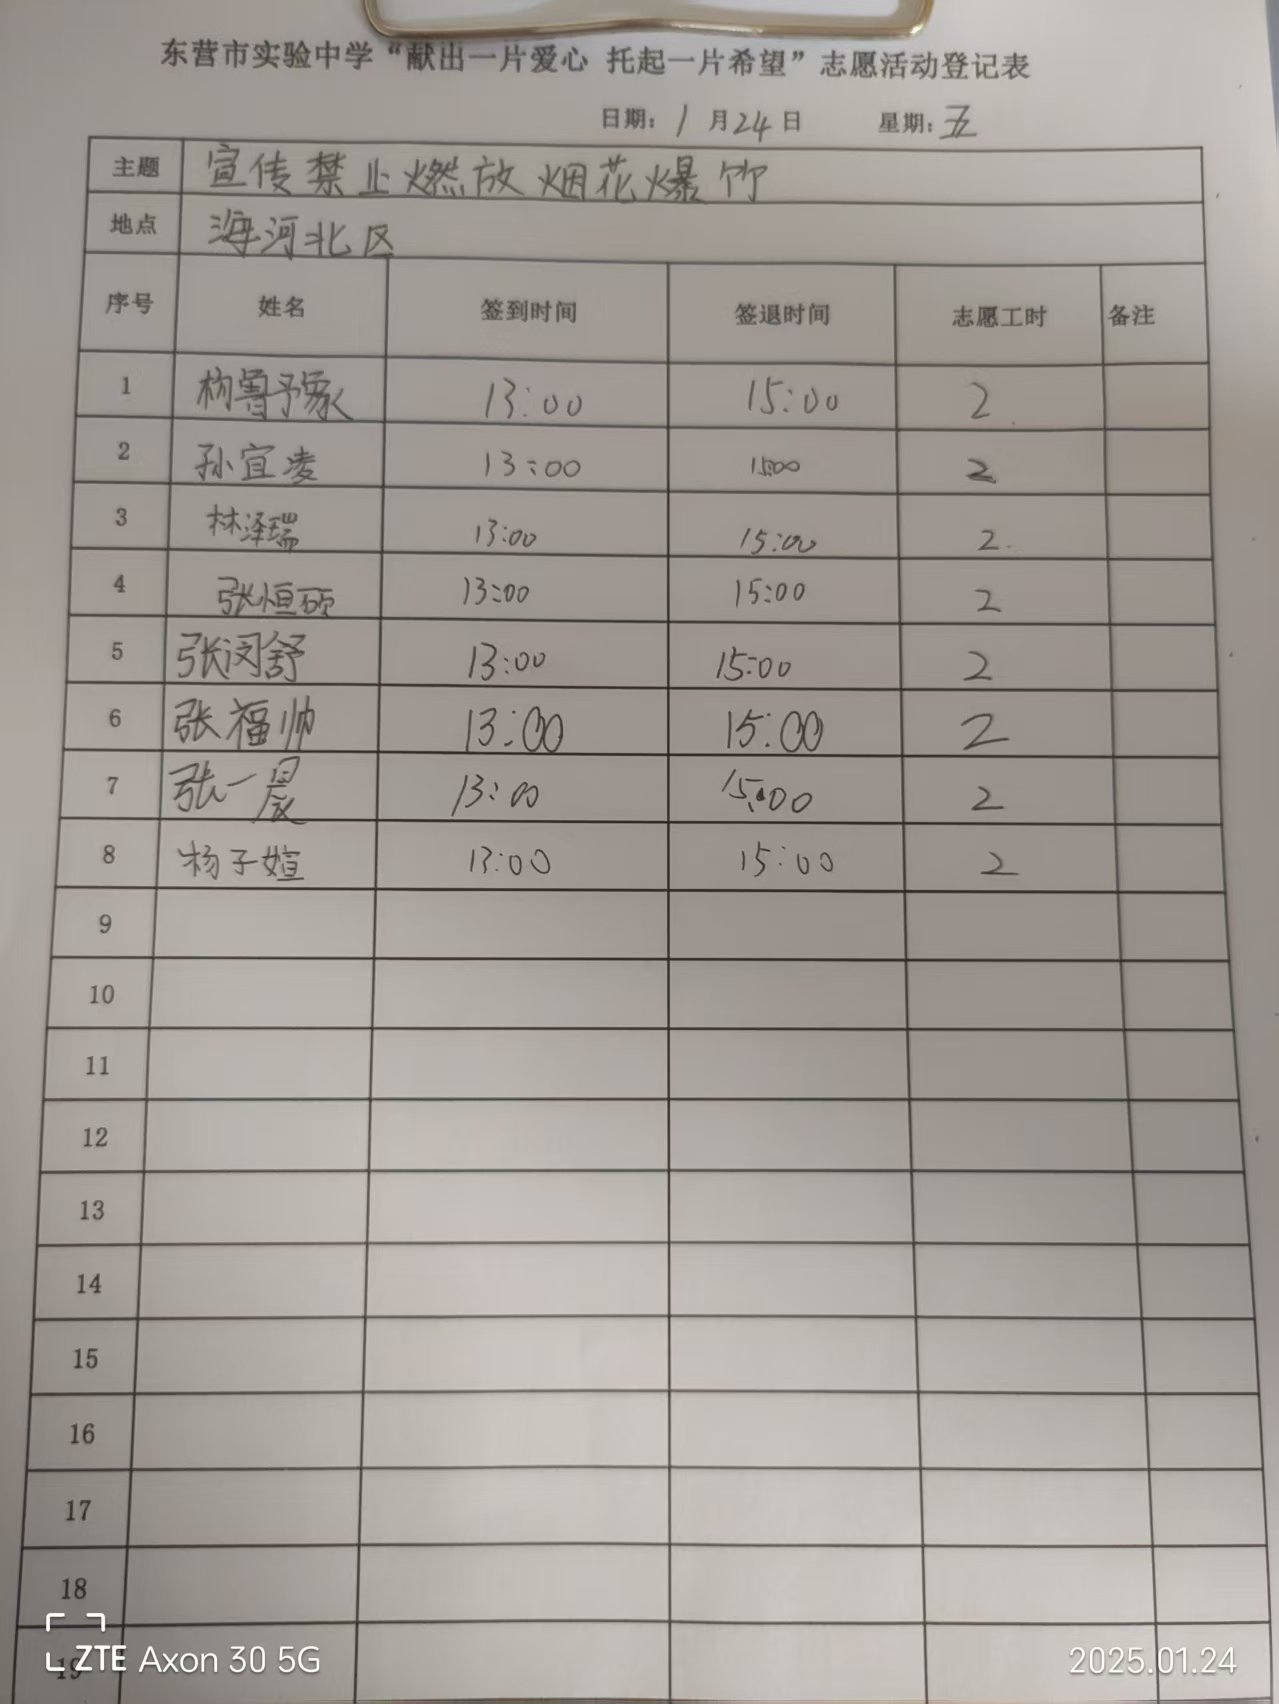 东营市实验中学“献出一片爱心 托起一片希望”志愿活动登记表
日期：1月24日 星期：五
主题 宣传禁止燃放烟花爆竹
地点 海河北区
序号 姓名 签到时间 签退时间 志愿工时 备注
1 鲁予象 13:00 15:00 2
2 孙宜凌 13:00 15:00 2
3 林泽瑞 13:00 15:00 2
4 张恒硕 13:00 15:00 2
5 张闵舒 13:00 15:00 2
6 张福帅 13:00 15:00 2
7 张一晨 13:00 15:00 2
8 杨子媗 13:00 15:00 2
9
10
11
12
13
14
15
16
17
18
19
ZTE Axon 30 5G 2025.01.24